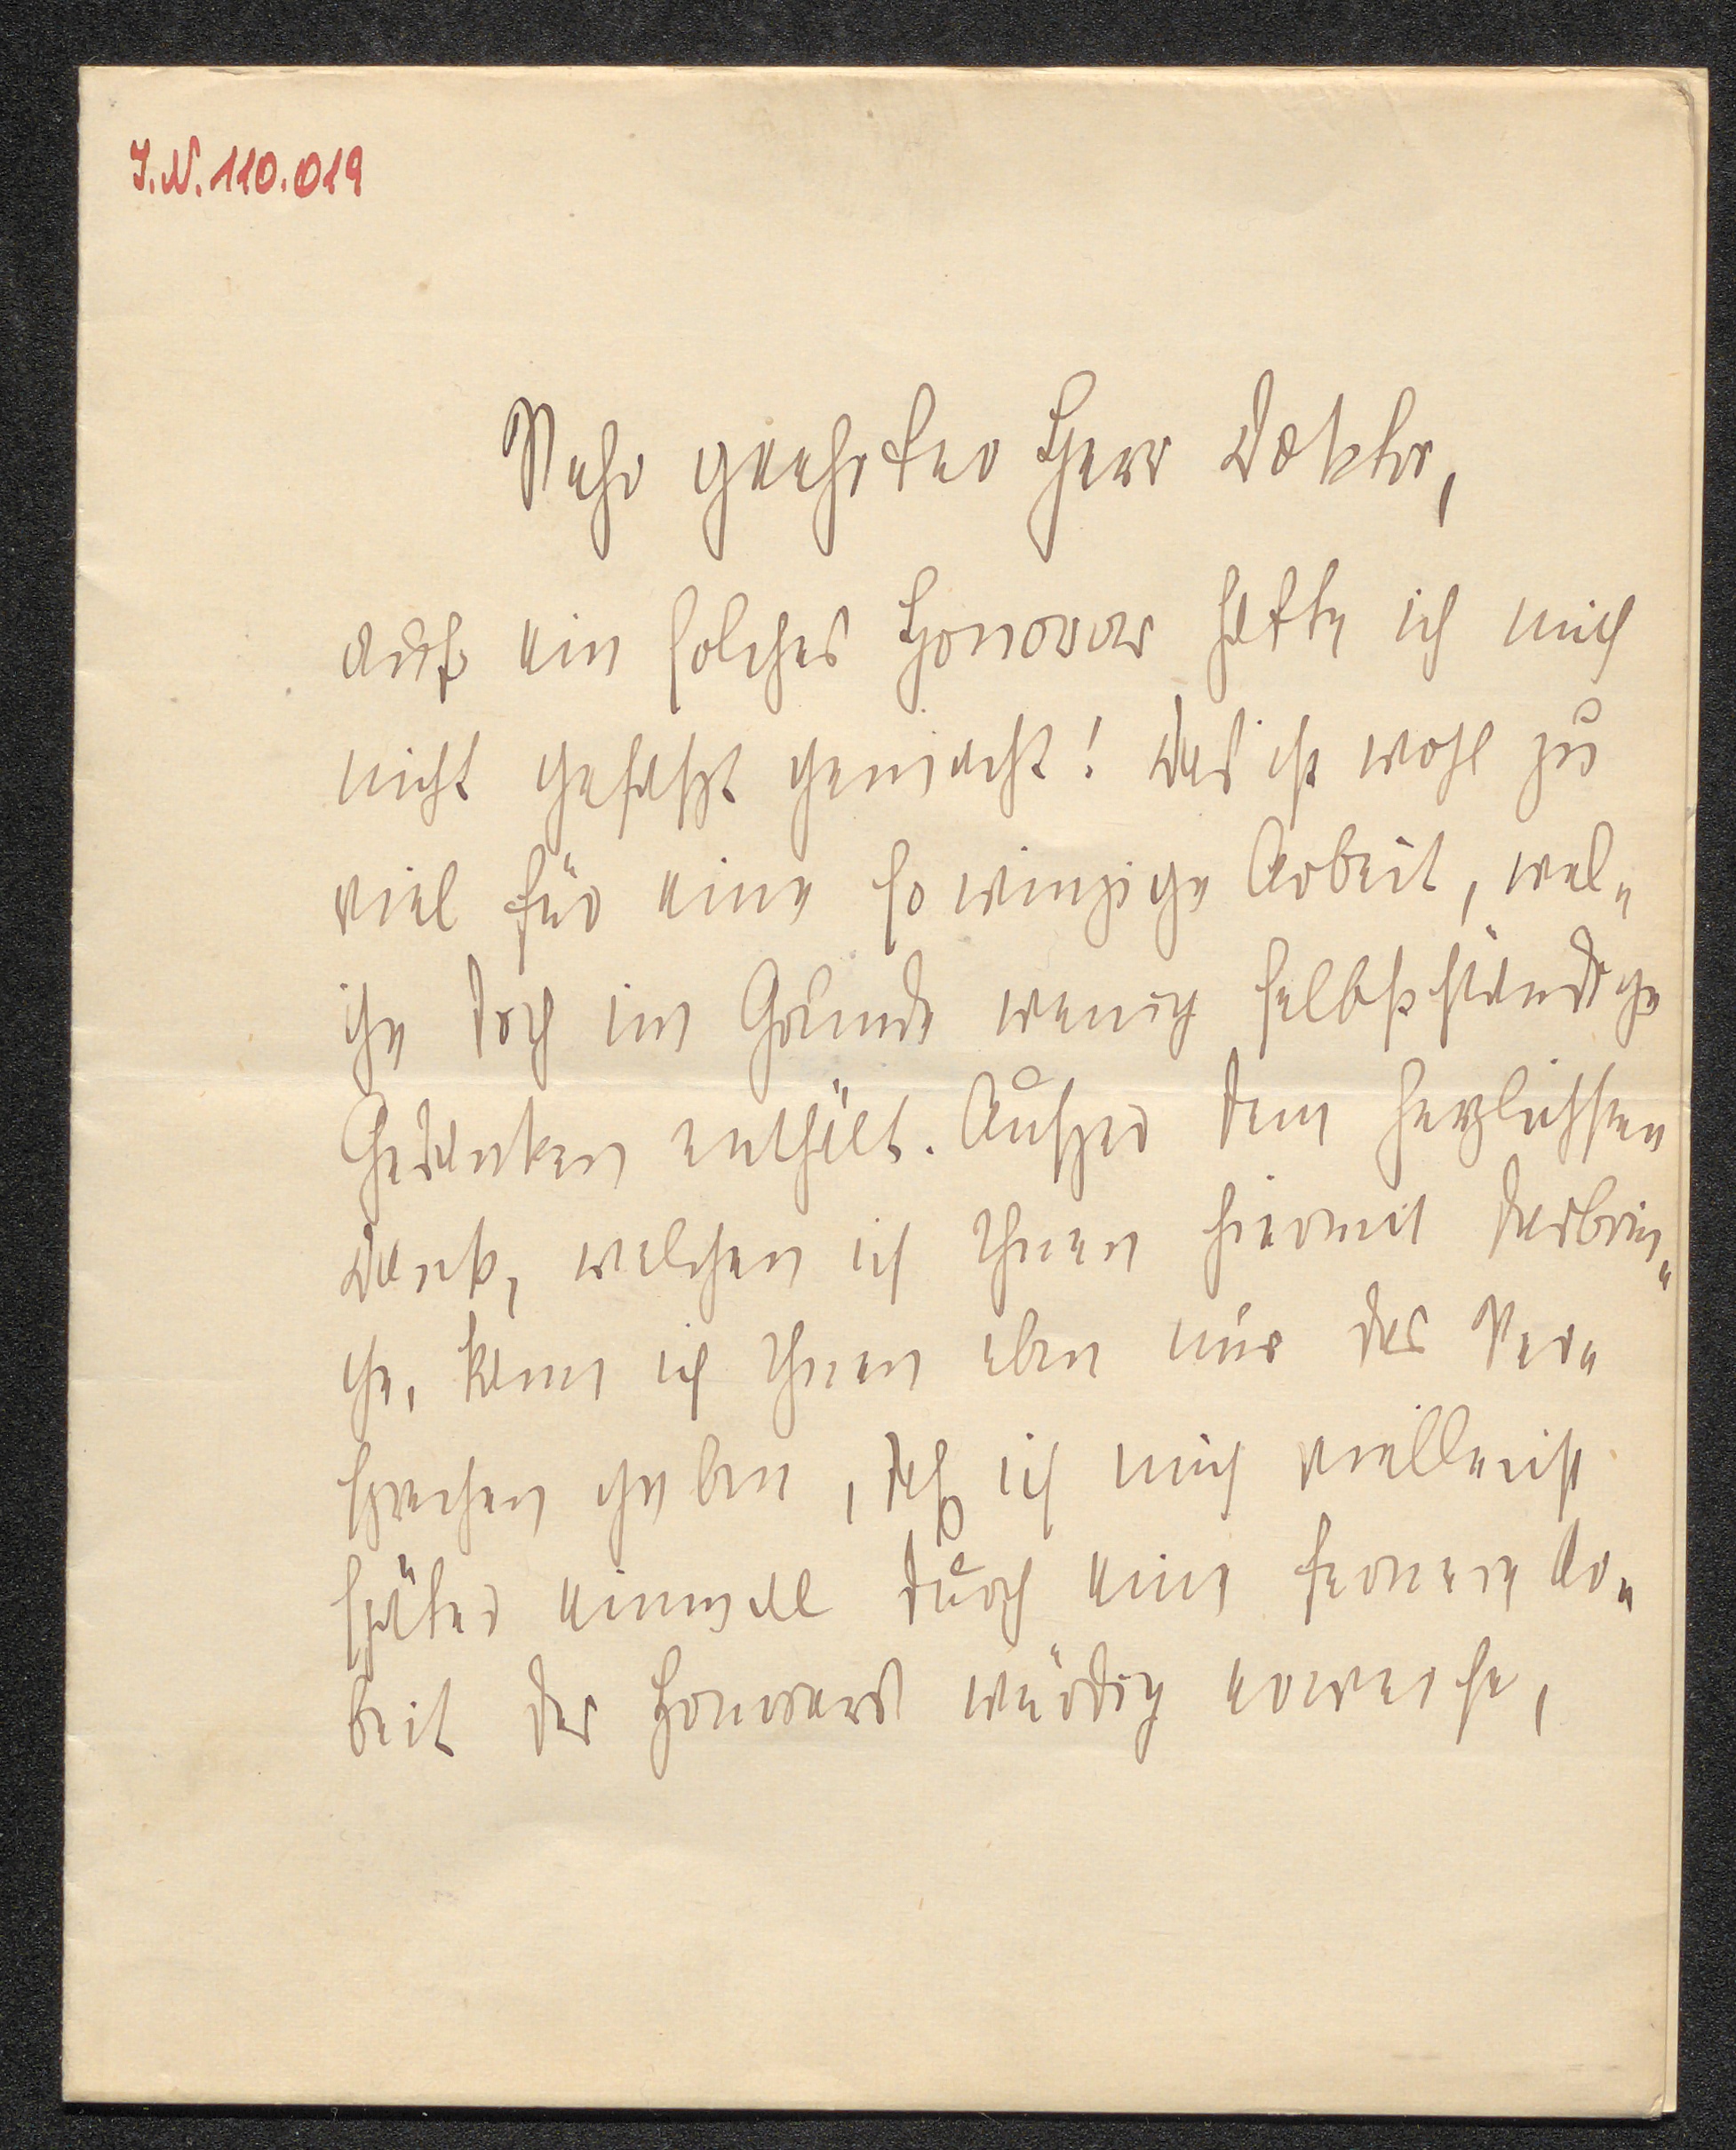 J.N. 110.019
Sehr geehrter Herr Doktor,
auf ein solches Honorar hatte ich mich
nicht gefaßt gemacht! Das ist wohl zu
viel für eine so winzige Arbeit, wel-
che doch im Grunde wenig selbstständige
Gedanken enthält. Außer dem herzlichsten
Dank, welchen ich Ihnen hiermit darbrin-
ge, kann ich Ihnen eben nur das Ver-
sprechen geben, daß ich mich vielleicht
später einmal durch eine fernere Ar-
beit des Honorars würdig erweise,